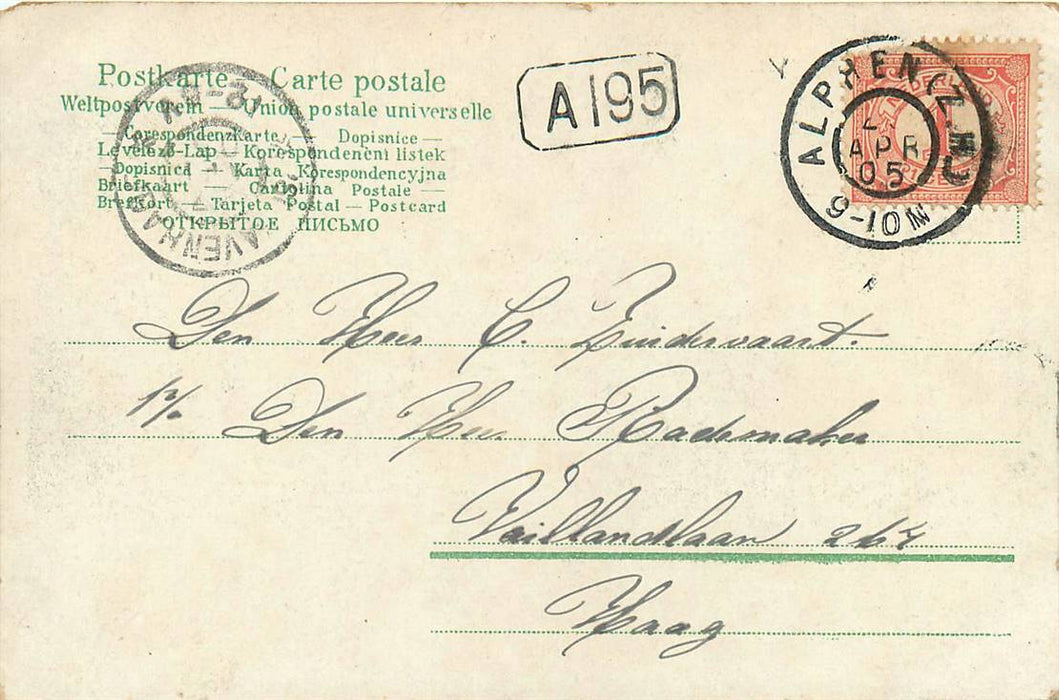 Postkarte — Carte postale
Weltpostverein — Union postale universelle
— CorespondenzKarte — Dopisnice —
Levelezö-Lap — Korespondenční listek
— Dopisnica — Karta Korespondencyjna
Briefkaart — Cartolina Postale —
Brefkort — Tarjeta Postal — Postcard
ОТКРЫТОЕ ПИСЬМО
A 195
ALPHEN (Z.H.)
APR
05
9-10N
Den Heer C. Zuidervaart.
p/a Den Heer Rademaker
Vaillantlaan 267
Haag